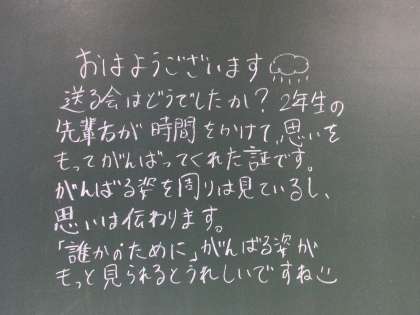 おはようございます
送る会はどうでしたか？2年生の
先輩方が時間をかけて、思いを
もってがんばってくれた証です。
がんばる姿を周りは見ているし、
思いは伝わります。
「誰かのために」がんばる姿が
もっと見られるとうれしいですね